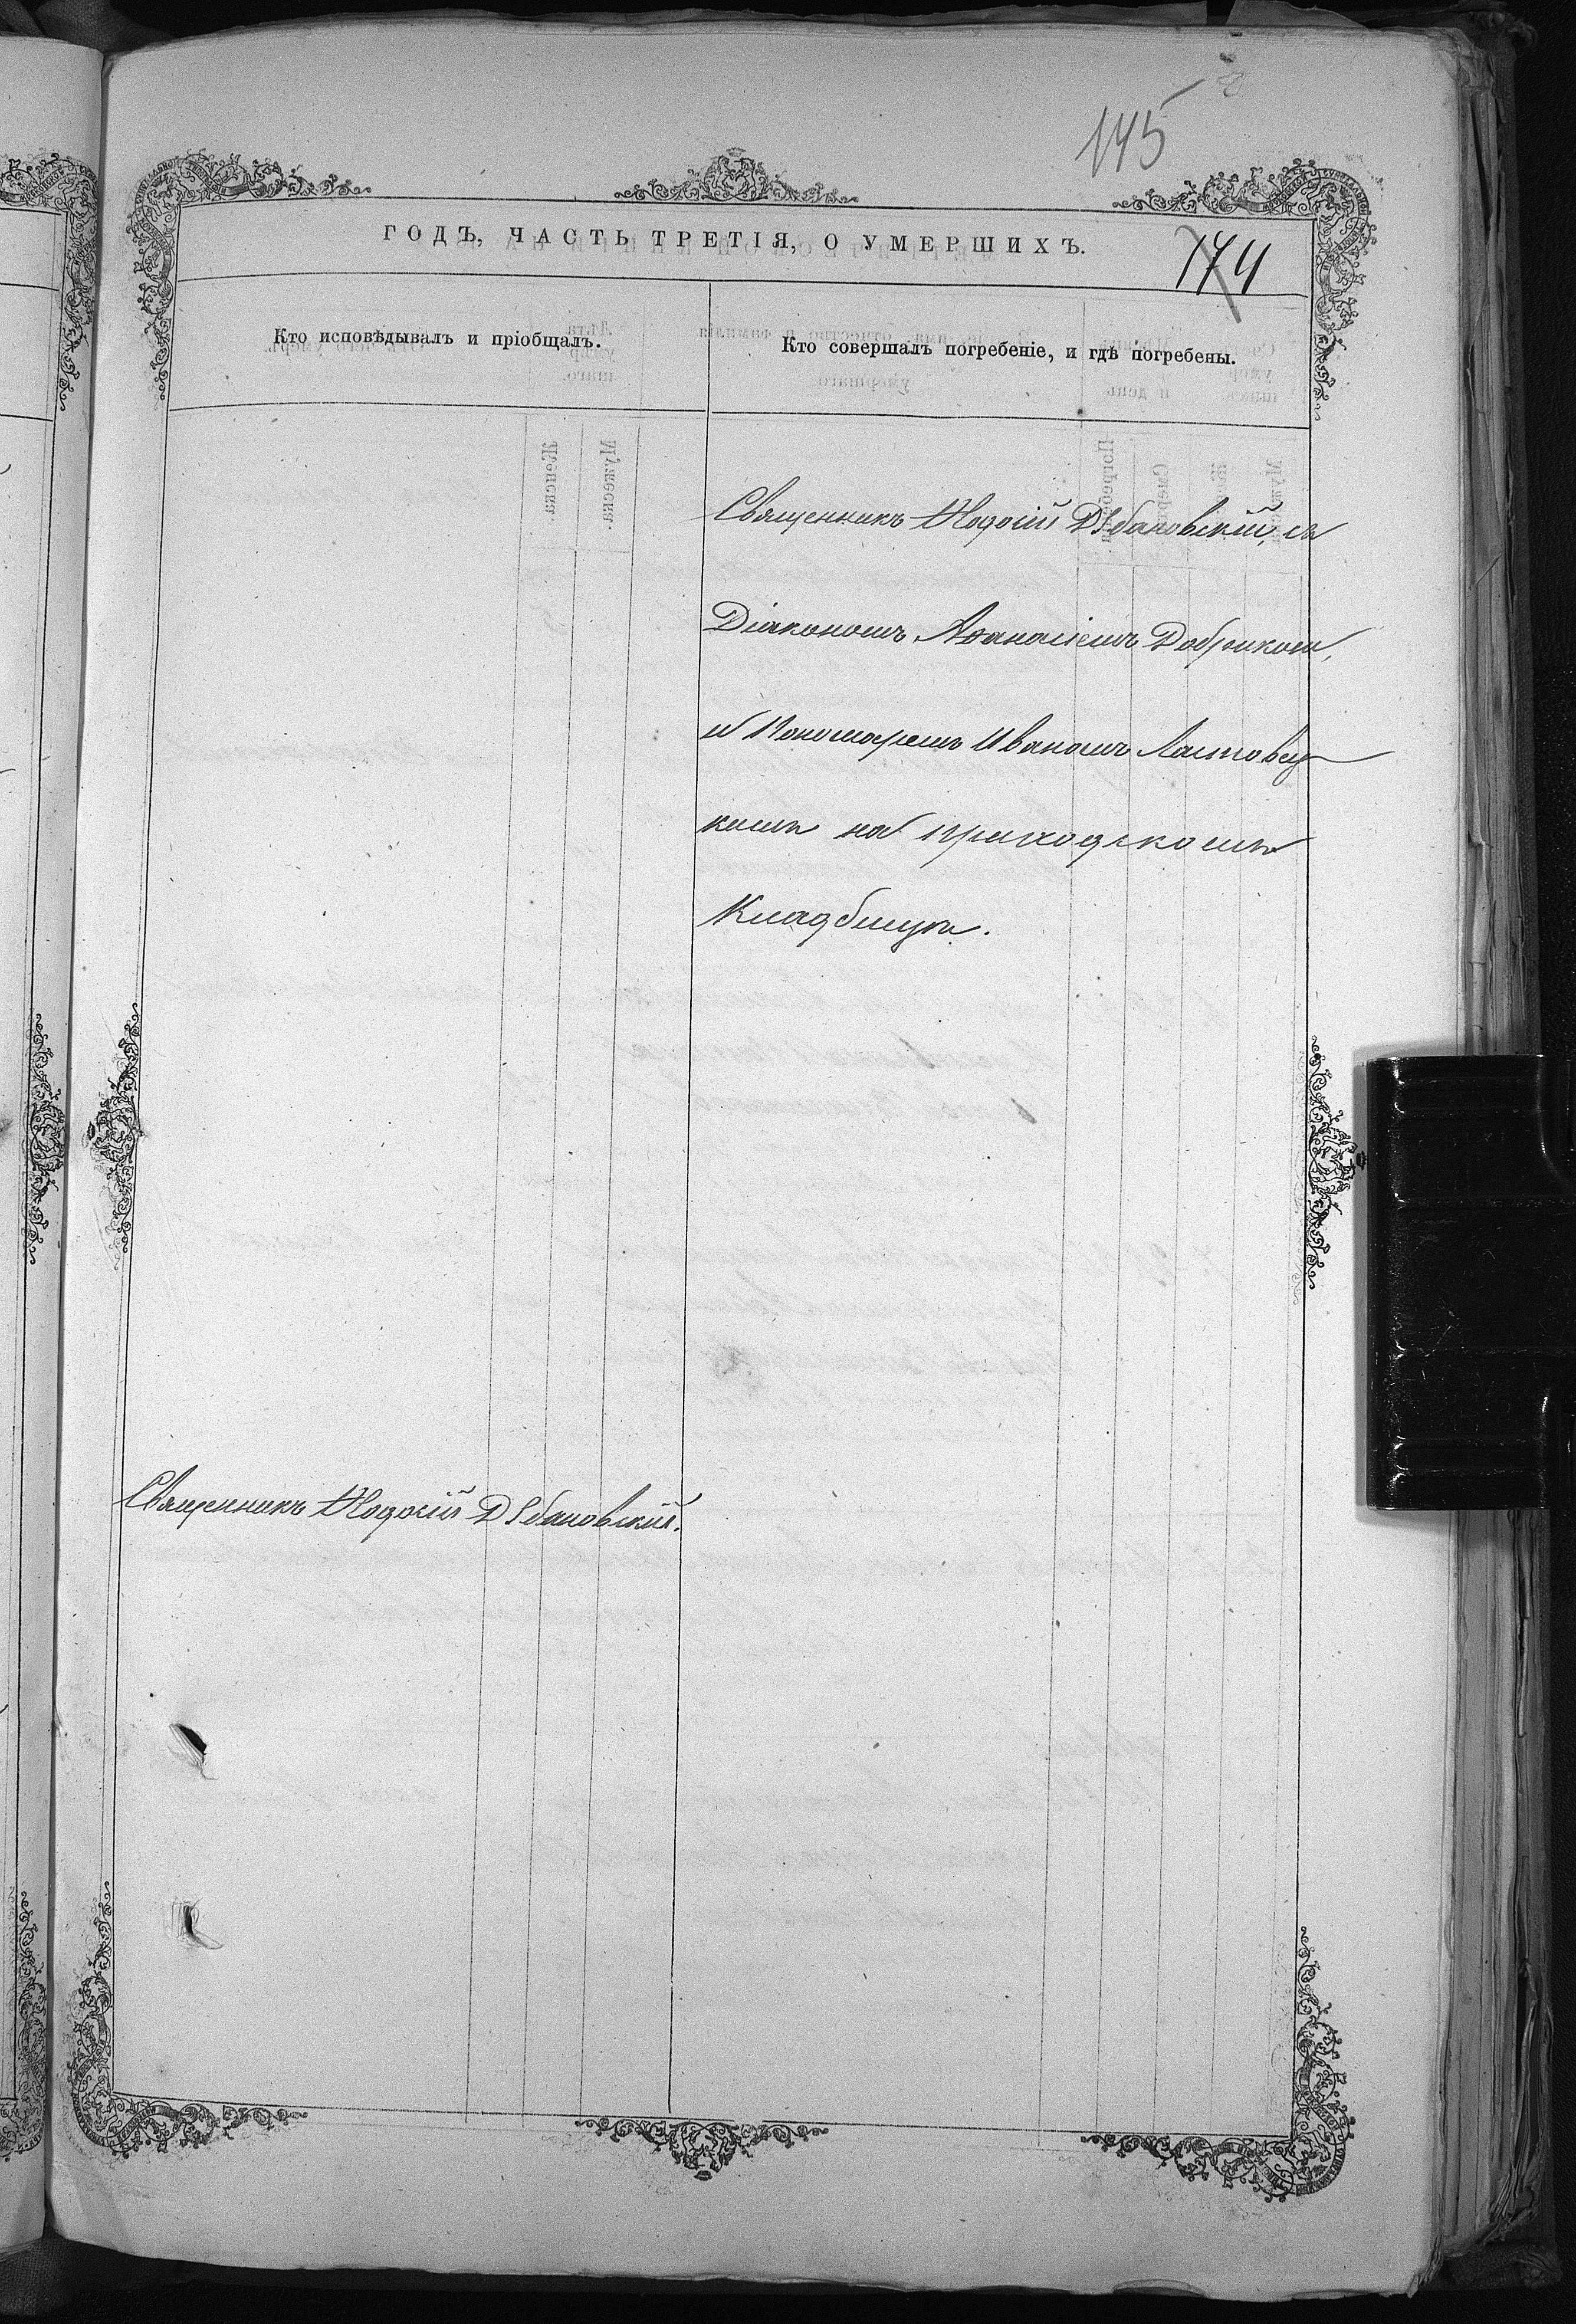 145
ГОДЪ, ЧАСТЬ ТРЕТІЯ, О УМЕРШИХЪ.
174
Кто исповѣдывалъ и пріобщалъ.
Кто совершалъ погребеніе, и гдѣ погребены.
Священникъ Ѳеодосій Дѣбановскій, съ
Діакономъ Аѳанасіемъ
и Пономаремъ Иваномъ Ластовец
кимъ на приходскомъ
Кладбищѣ.
Священникъ Ѳеодосій Дѣбановскій.